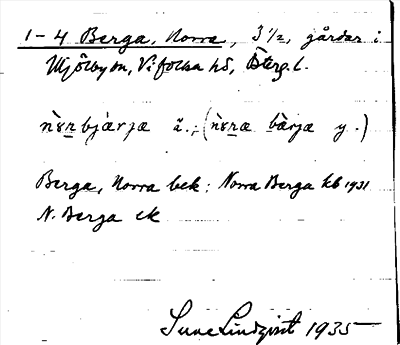 1-4 Berga, Norra, 3 1/2, gårdar i
Mjölby sn, Vifolka hd, Österg. l.
nɤ̀ṟn bjǽrjæ ä.; (nɤ̀ṟnæ bæ̀rjæ y.)
Berga, Norra bek; Norra Berga kb 1931
N. Berga ek
Sune Lindqvist 1935